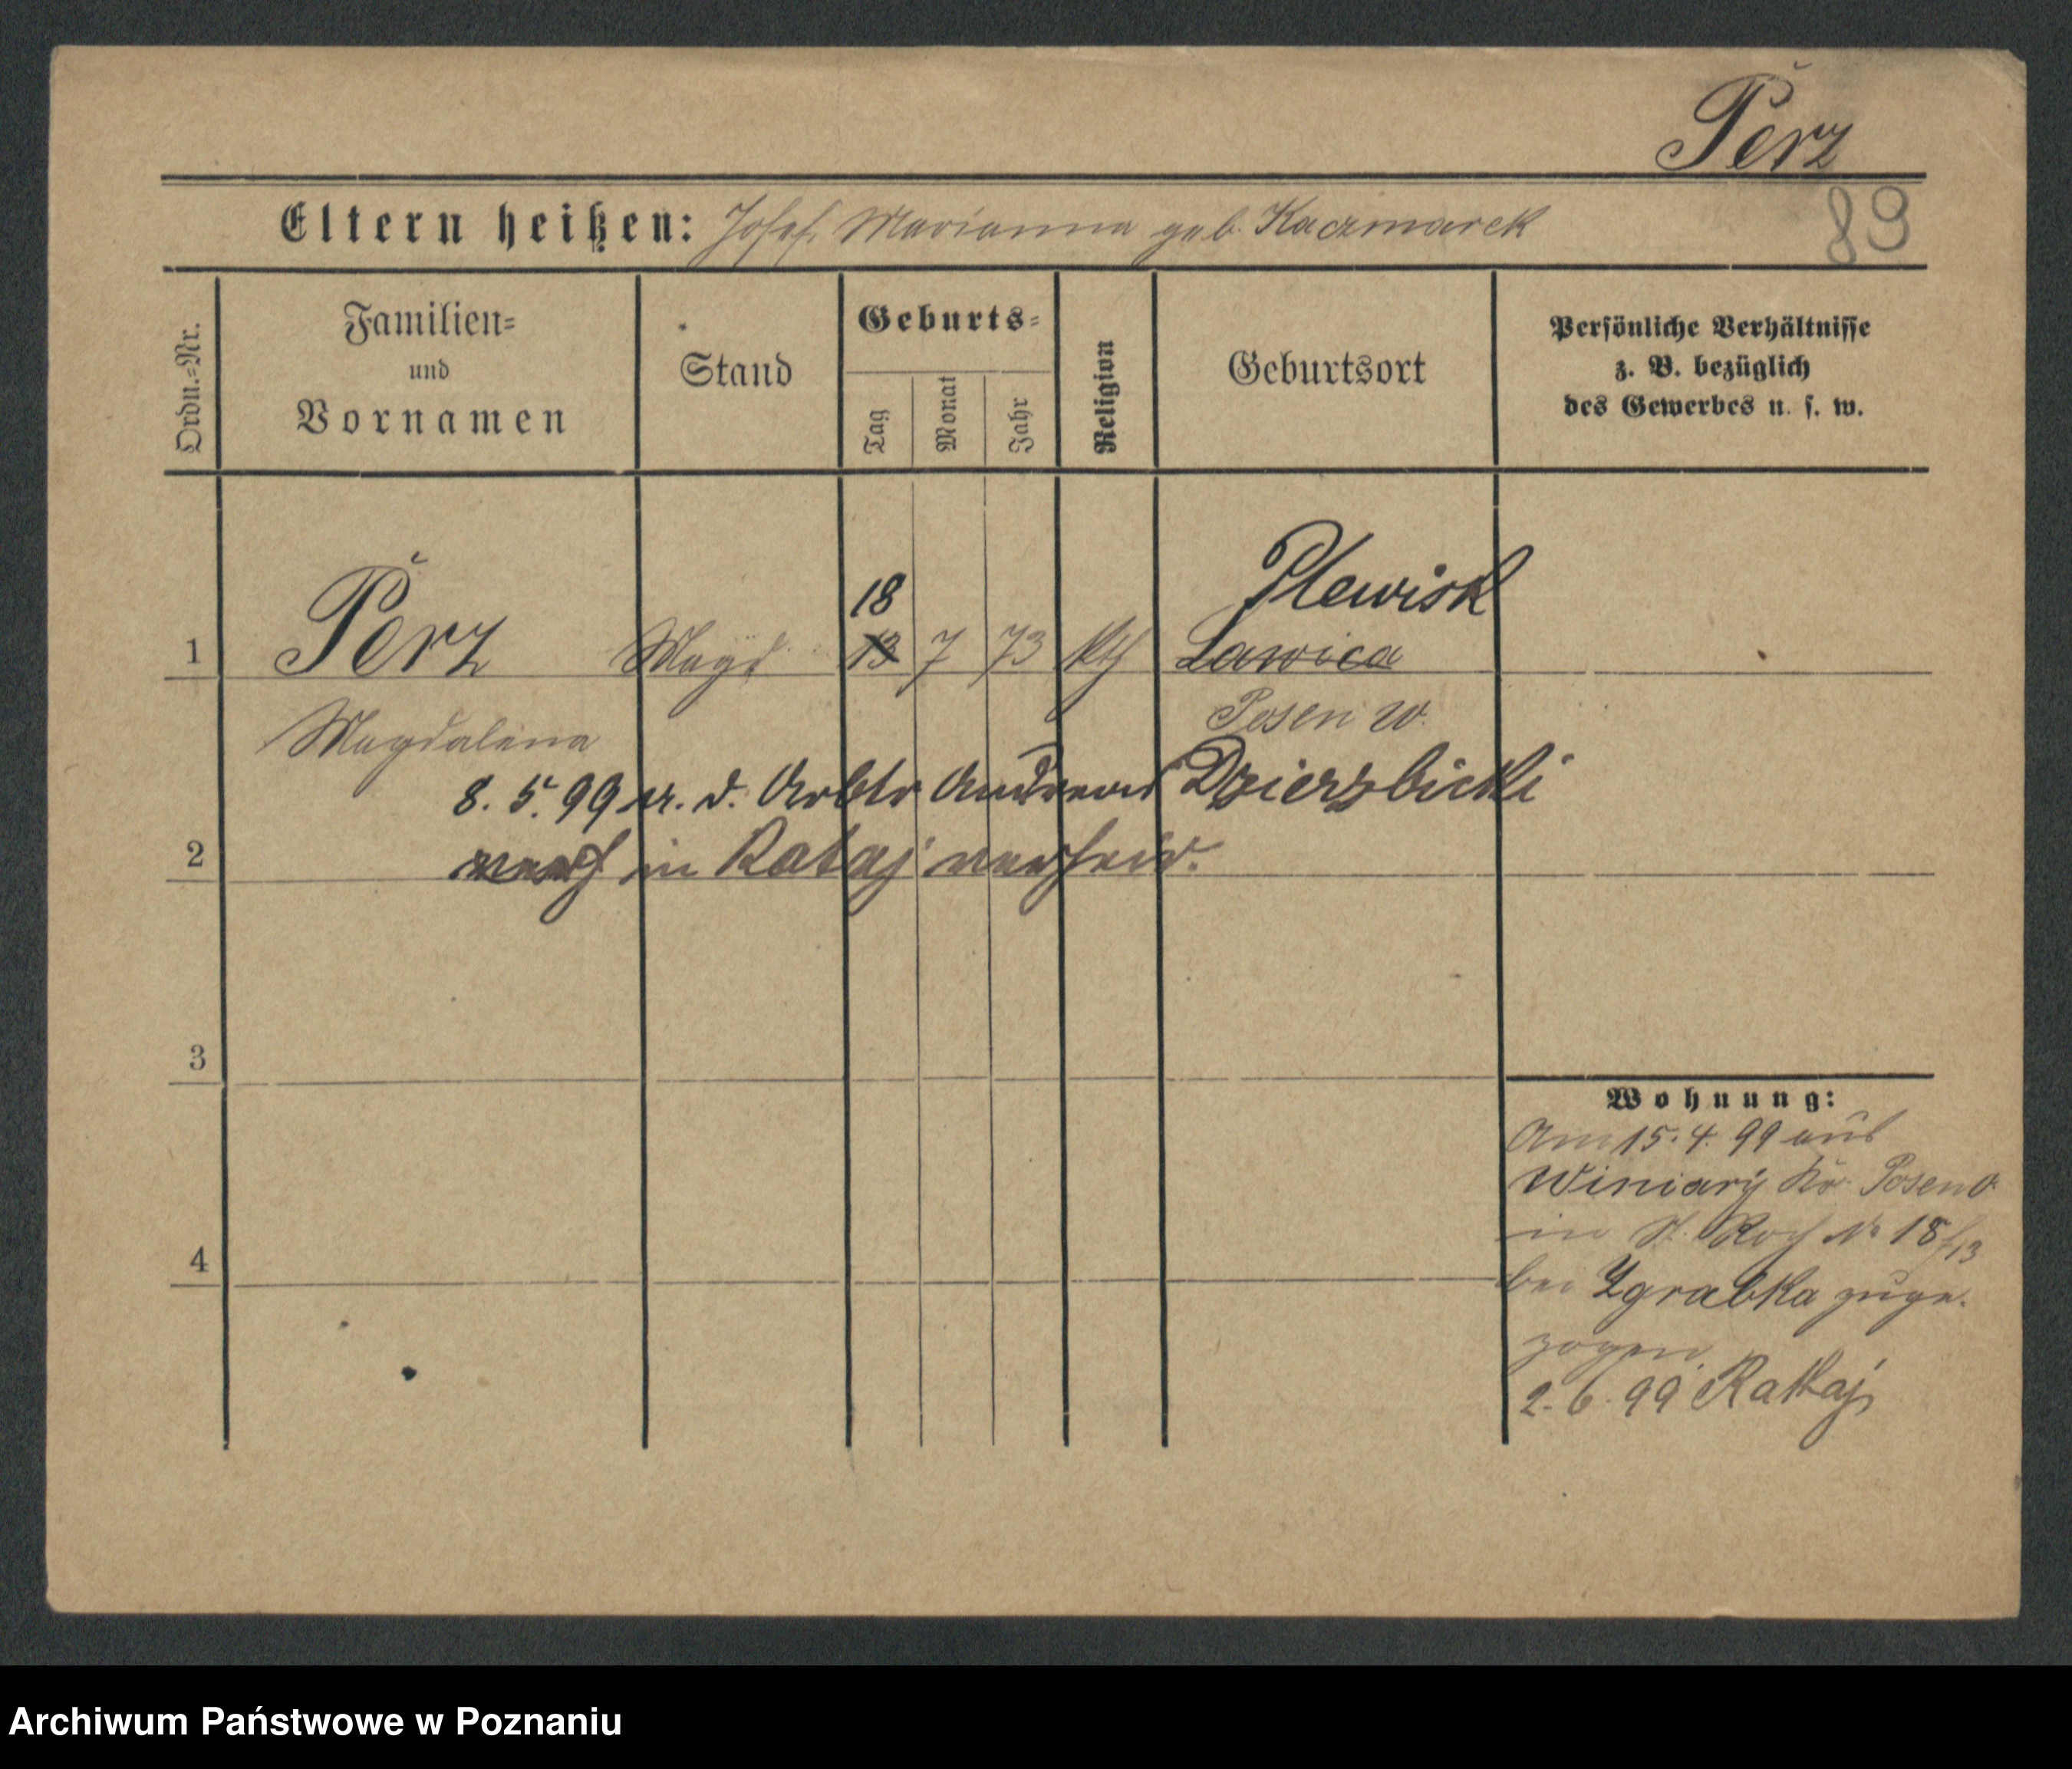 Perz
89
Eltern heißen: Josef, Marianna geb. Kaczmarek
Ordn.=Nr.
Familien=
und
Vornamen
Stand
Geburts=
Tag
Monat
Jahr
Religion
Geburtsort
Persönliche Verhältnisse
z. B. bezüglich
des Gewerbes u. s. w.
18
Plewisk
1 Perz Magd 13 7 73 kth Lawica
Magdalena Posen W.
8. 5. 99 m. d. Arbtr Andreas Dzierzbicki
2 in Rataj verheir.
3
4
Wohnung:
Am 15. 4. 99 aus
Winiary Kr. Posen O.
in St. Roch No 18/13
bei Zgrabka zuge-
zogen.
2. 6. 99 Rattaj
Archiwum Państwowe w Poznaniu